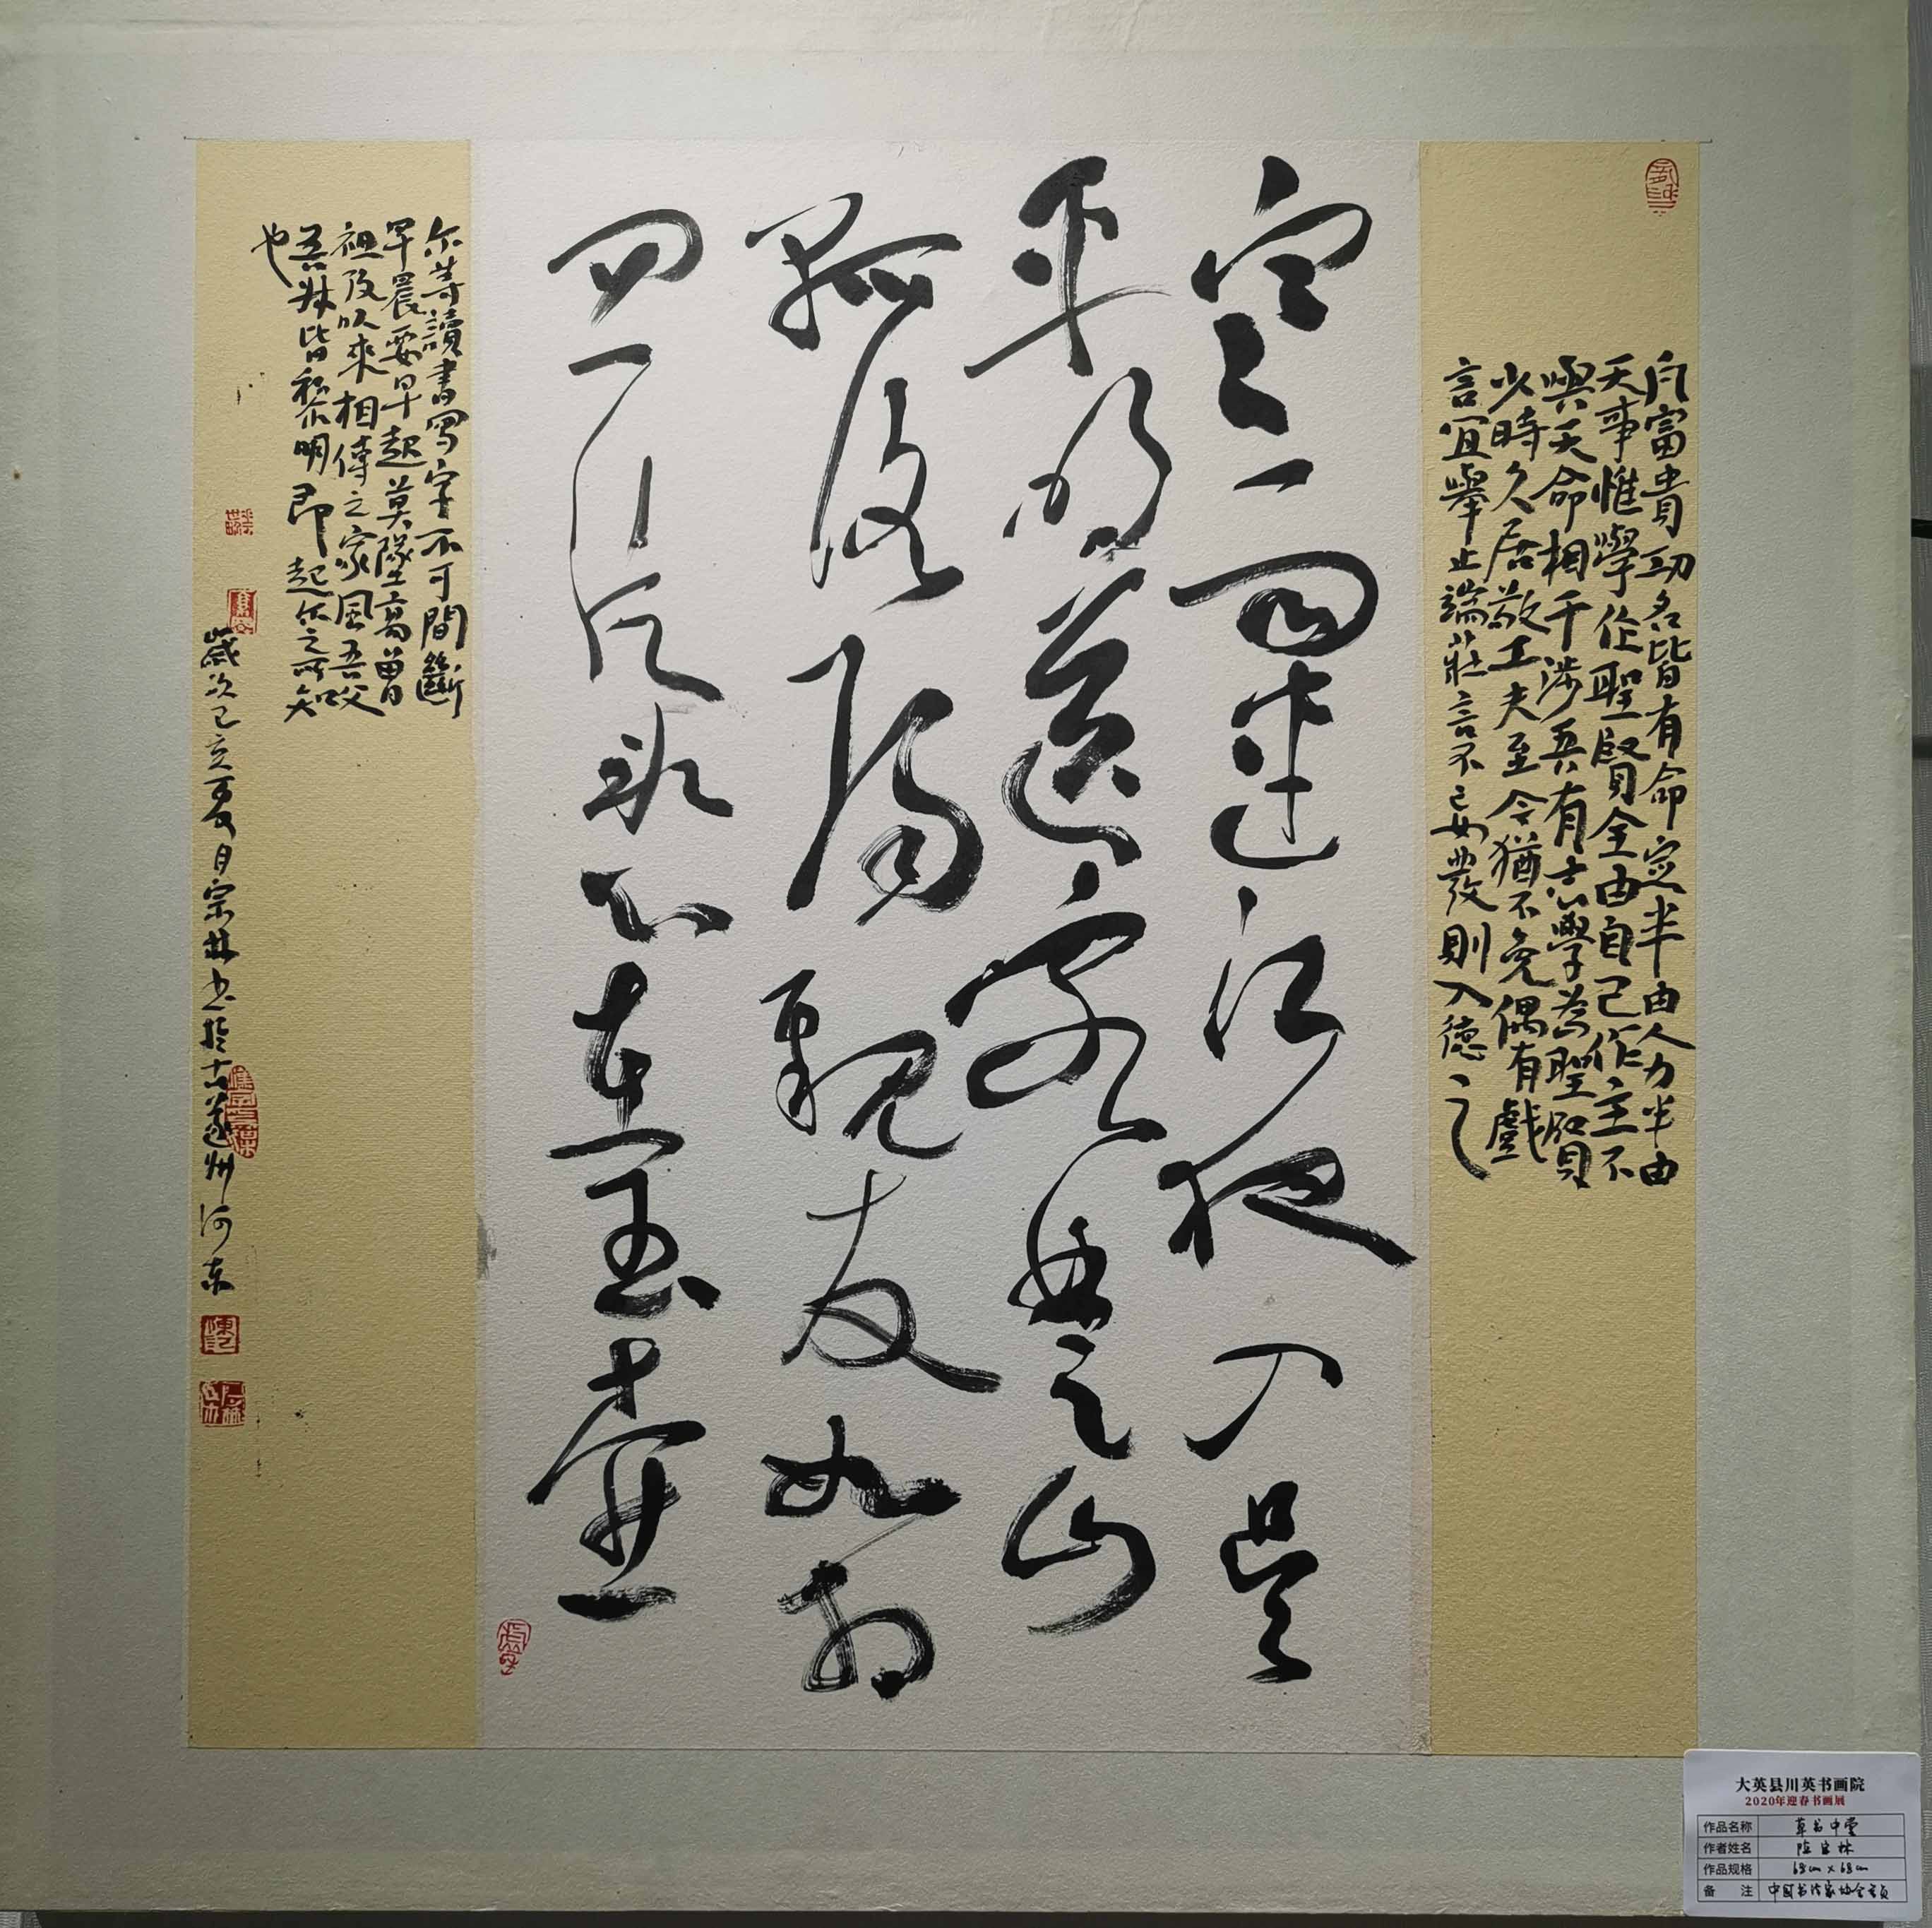 凡富貴功名皆有命定半由人力半由
天事惟學作聖賢全由自己作主不
與天命相干涉吾有志學為聖賢
少時欠居敬工夫至今猶不免偶有戲
言宜舉止端莊言不妄發則入德之
寒雨連江夜入吴
平明送客楚山
孤洛陽親友如相
问一片冰心在玉壺
尔等讀書寫字不可間斷
早晨要早起莫墜高曾
祖攷以來相傳之家風吾父
吾叔皆黎明即起尔之所知
也
歲次己亥夏日宗林书於古遂州河东
大英县川英书画院
2020年迎春书画展
作品名称 草书中堂
作者姓名 陈宗林
作品规格 68cm×68cm
备 注 中国书法家协会会员